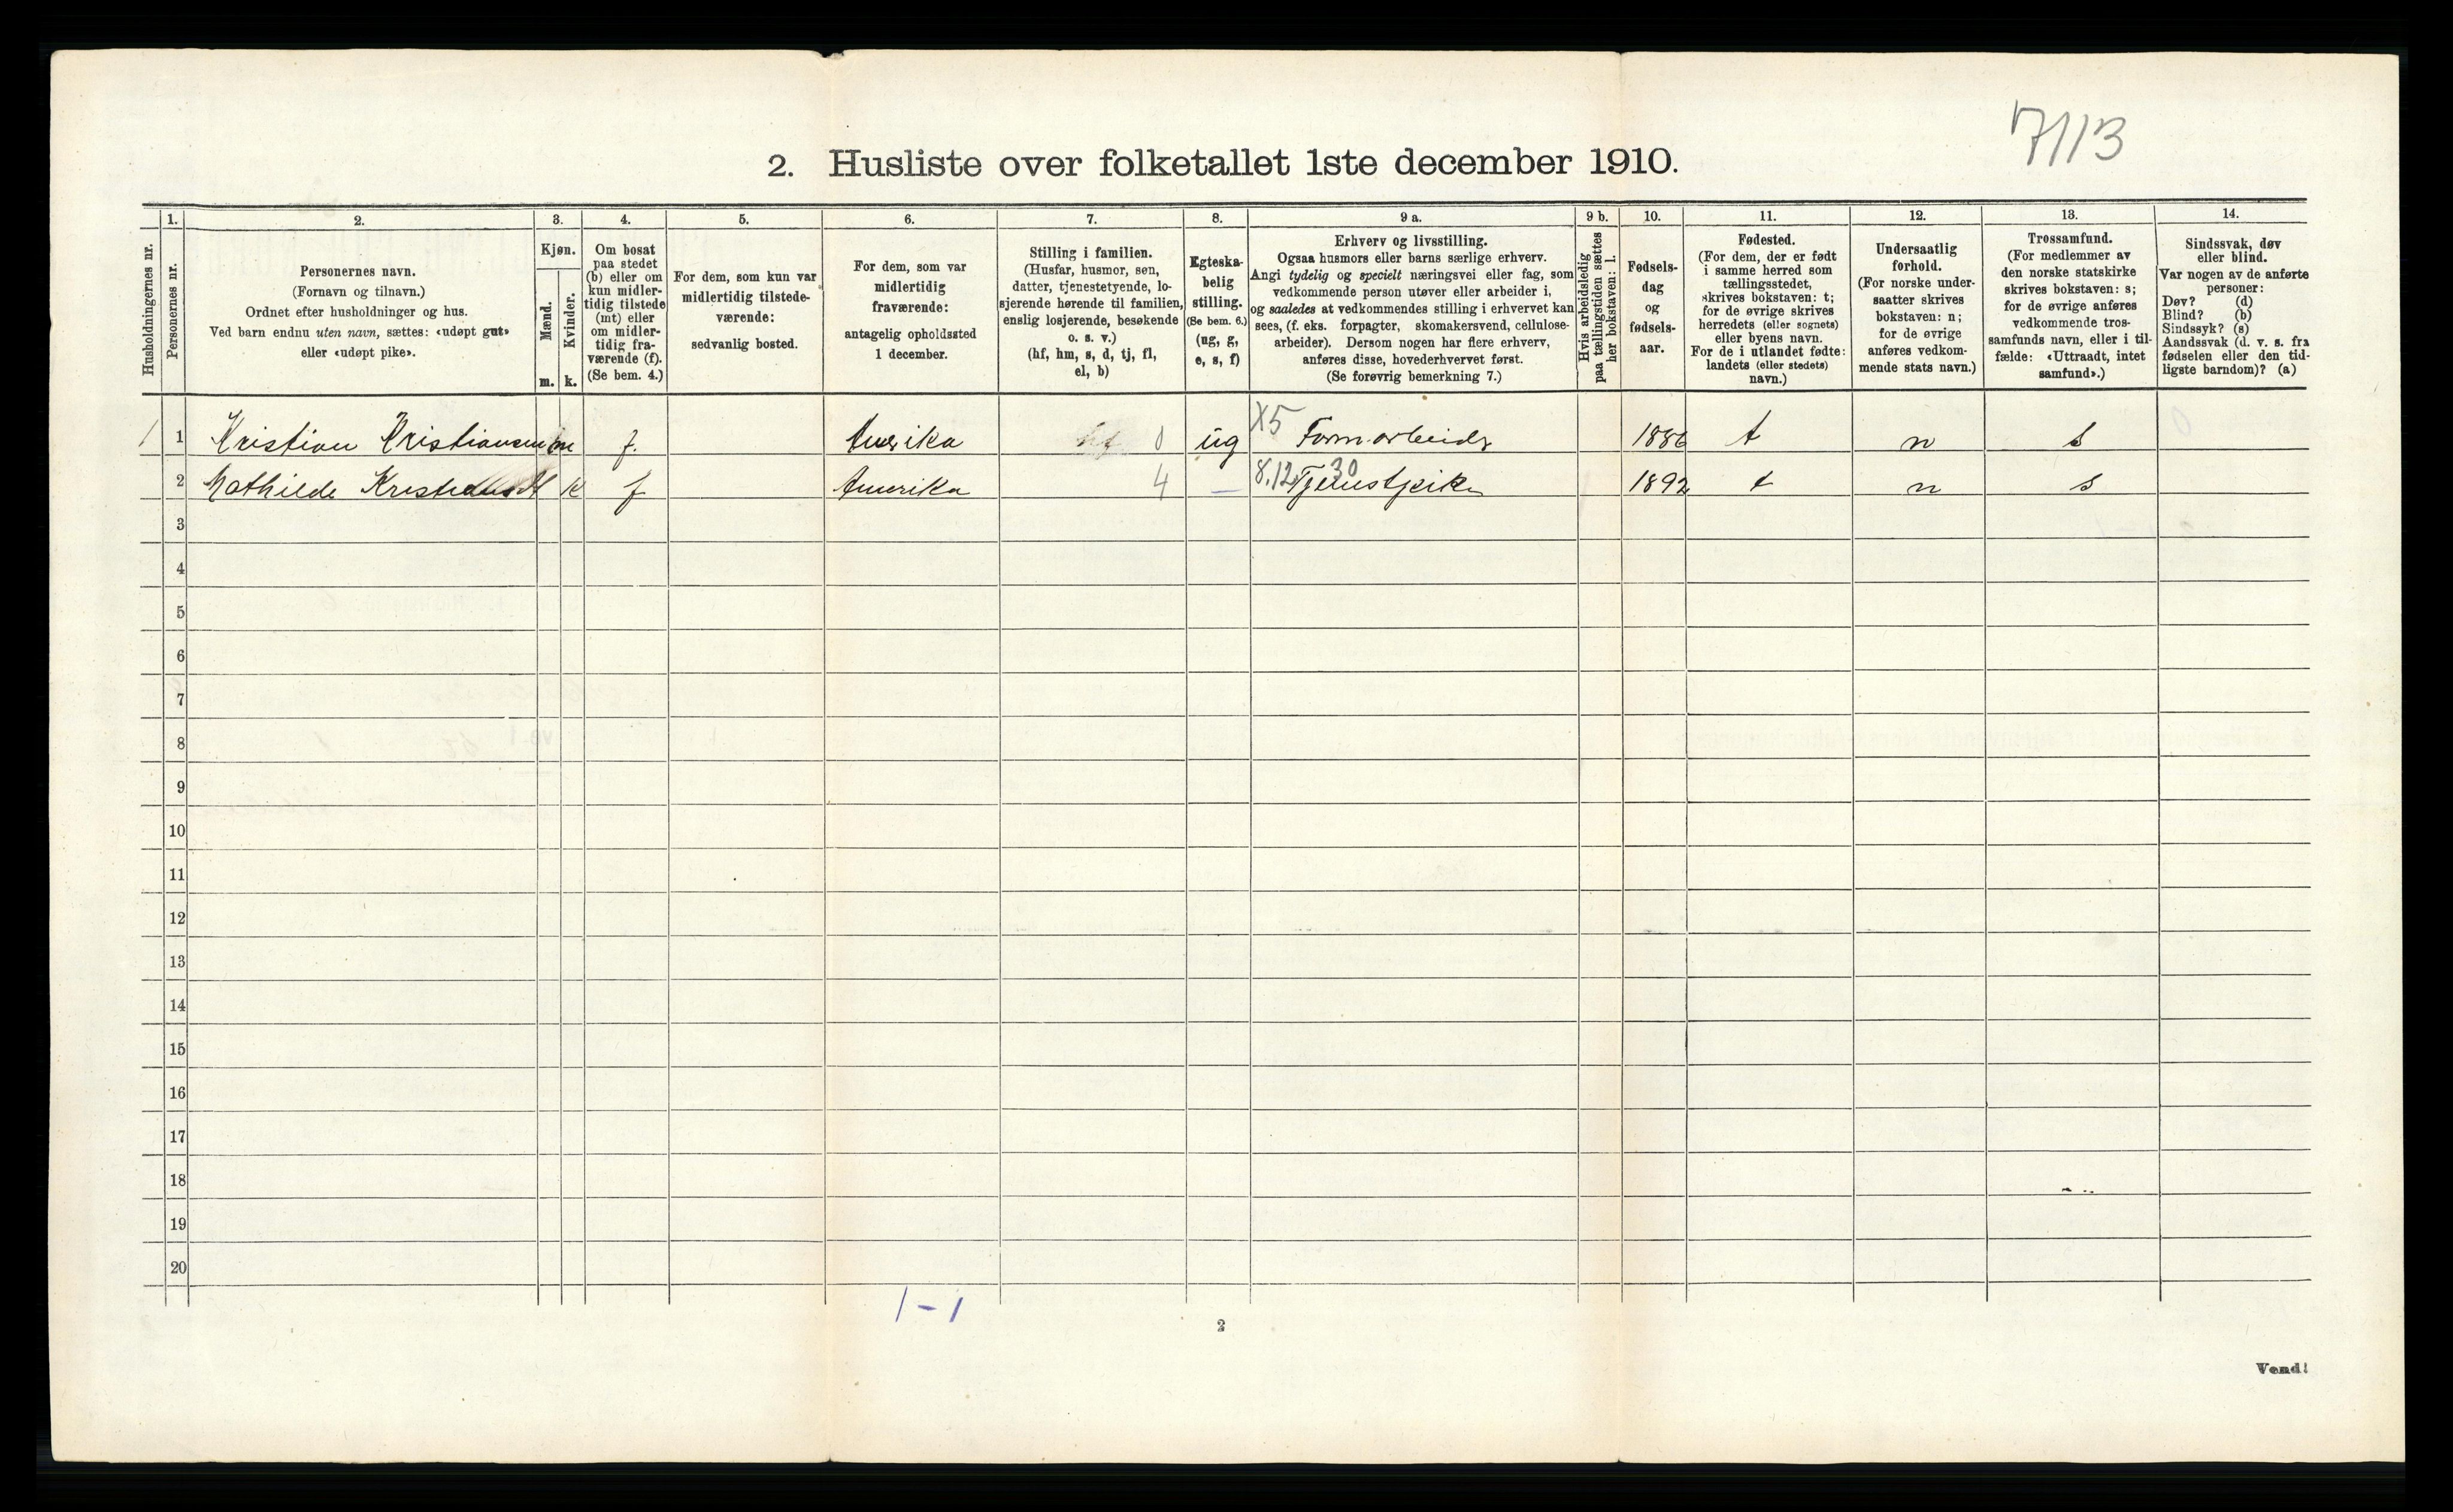 7113
2. Husliste over folketallet 1ste december 1910.
1. 2. 3. 4. 5. 6. 7. 8. 9 a. 9 b. 10. 11. 12. 13. 14.
Husholdningernes nr.
Personernes nr.
Personernes navn.
(Fornavn og tilnavn.)
Ordnet efter husholdninger og hus.
Ved barn endnu uten navn, sættes: «udøpt gut»
eller «udøpt pike».
Kjøn.
Mænd.
Kvinder.
m. k.
Om bosat
paa stedet
(b) eller om
kun midler-
tidig tilstede
(mt) eller
om midler-
tidig fra-
værende (f).
(Se bem. 4.)
For dem, som kun var
midlertidig tilstede-
værende:
sedvanlig bosted.
For dem, som var
midlertidig
fraværende:
antagelig opholdssted
1 december.
Stilling i familien.
(Husfar, husmor, søn,
datter, tjenestetyende, lo-
sjerende hørende til familien,
enslig losjerende, besøkende
o. s. v.)
(hf, hm, s, d, tj, fl,
el, b)
Egteska-
belig
stilling.
(Se bem. 6.)
(ug, g,
e, s, f)
Erhverv og livsstilling.
Ogsaa husmors eller barns særlige erhverv.
Angi tydelig og specielt næringsvei eller fag, som
vedkommende person utøver eller arbeider i,
og saaledes at vedkommendes stilling i erhvervet kan
sees, (f. eks. forpagter, skomakersvend, cellulose-
arbeider). Dersom nogen har flere erhverv,
anføres disse, hovederhvervet først.
(Se forøvrig bemerkning 7.)
Hvis arbeidsledig
paa tællingstiden sættes
her bokstaven: l.
Fødsels-
dag
og
fødsels-
aar.
Fødested.
(For dem, der er født
i samme herred som
tællingsstedet,
skrives bokstaven: t;
for de øvrige skrives
herredets (eller sognets)
eller byens navn.
For de i utlandet fødte:
landets (eller stedets)
navn.)
Undersaatlig
forhold.
(For norske under-
saatter skrives
bokstaven: n;
for de øvrige
anføres vedkom-
mende stats navn.)
Trossamfund.
(For medlemmer av
den norske statskirke
skrives bokstaven: s;
for de øvrige anføres
vedkommende tros-
samfunds navn, eller i til-
fælde: «Uttraadt, intet
samfund».)
Sindssvak, døv
eller blind.
Var nogen av de anførte
personer:
Døv? (d)
Blind? (b)
Sindssyk? (s)
Aandssvak (d. v. s. fra
fødselen eller den tid-
ligste barndom)? (a)
1 1 Kristian Kristiansen m f. Amerika 0 ug X5 Farmarbeider 1886 t n s
2 Mathilde k f Amerika 4 — 8.12 30 Tjenestpike 1892 t n s
3
4
5
6
7
8
9
10
11
12
13
14
15
16
17
18
19
20
1-1
2
Vend!